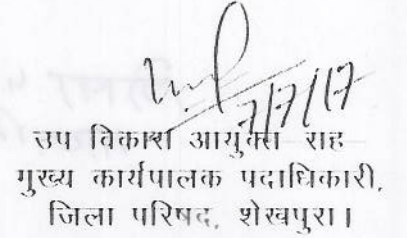 7/7/17
उप विकास आयुक्त सह
मुख्य कार्यपालक पदाधिकारी,
जिला परिषद, शेखपुरा।